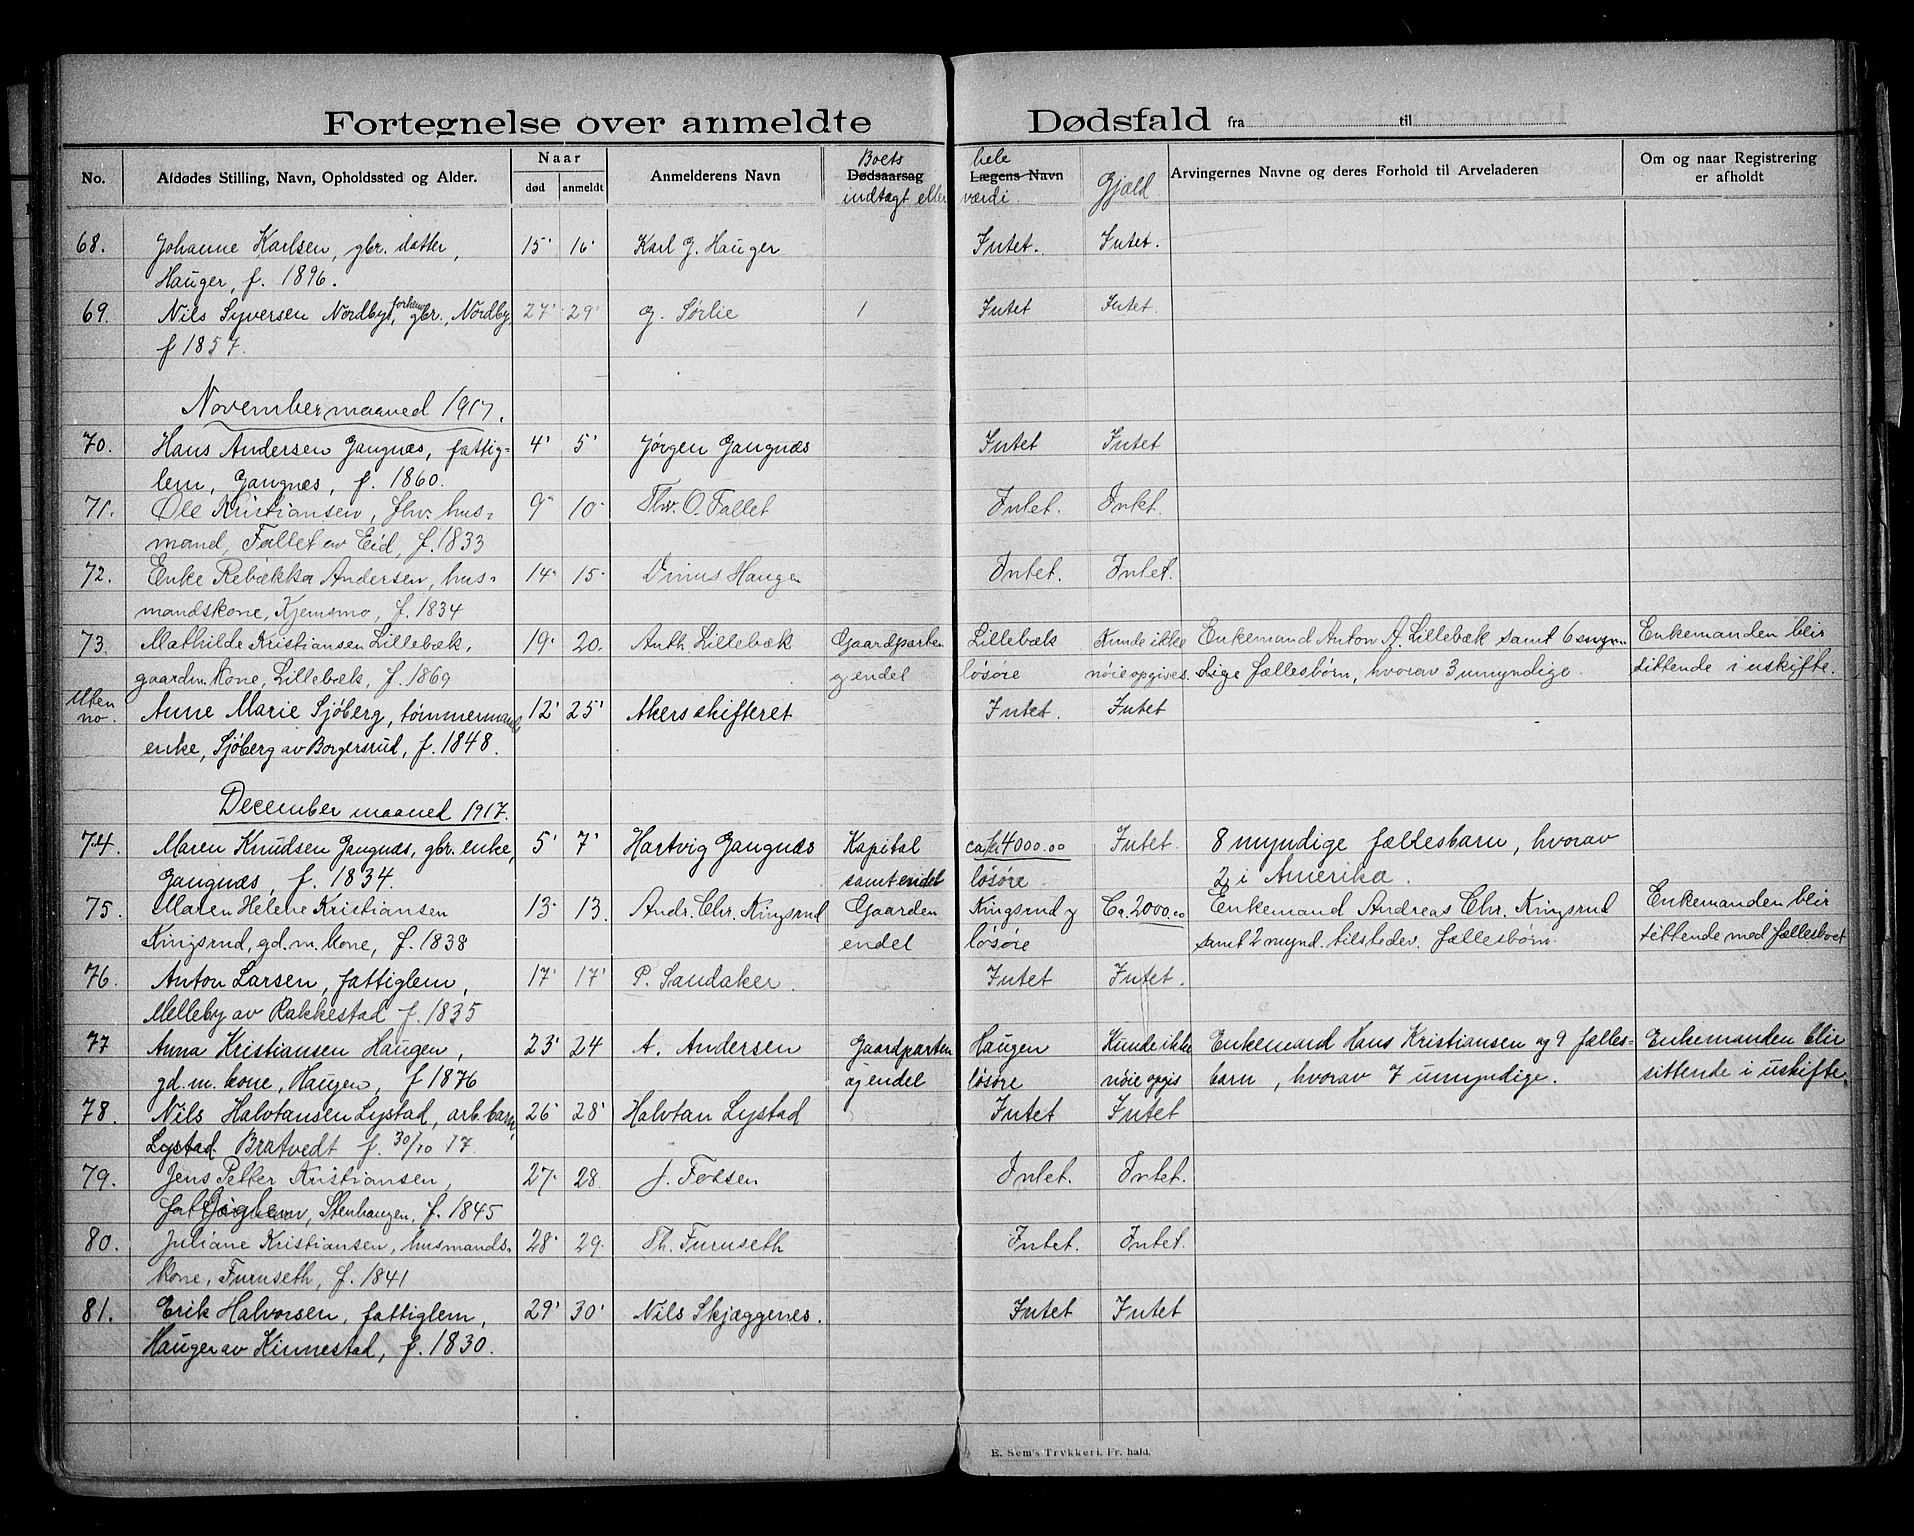 Fortegnelse over anmeldte Dødsfald fra til
No. Afdødes Stilling, Navn, Opholdssted og Alder. Naar død anmeldt Anmelderens Navn Boets Dødsaarsag indtægt eller hele Lægens Navn værdi. Gjæld Arvingernes Navne og deres Forhold til Arveladeren Om og naar Registrering er afholdt
68. Johanne Karlsen, gbr. datter, 15' 16' Karl G. Hauger Intet. Intet.
Hauger, f. 1896.
69. Nils Syversen Nordby, forhen gbr., Nordby, 27' 29' G. Sørlie 1 Intet Intet.
f 1857.
Novembermaaned 1917.
70. Hans Andersen Gangnæs, fattig- 4' 5' Jørgen Gangnæs Intet Intet
lem, Gangnæs, f. 1860.
71. Ole Kristiansen, fhv. hus- 9' 10- Thv. O. Fallet Intet. Intet.
mand, Fallet av Eid, f. 1833
72. Enke Rebækka Andersen, hus- 14- 15- Haugen Intet. Intet.
mandskone, Kjemsmo, f. 1834
73. Mathilde Kristiansen Lillebæk, 19- 20. Anth. Lillebæk Gaardparten Lillebæk Kunde ikke Enkemand Anton A. Lillebæk samt 6 Enkemanden blir
gaardm. kone, Lillebæk, f. 1869 og endel løsøre nøie opgives. fællesbørn, hvorav 3 umyndige. sittende i uskifte.
Uten no. Anne Marie Sjøberg, tømmermands 12' 25' Akers skifteret Intet. Intet
enke, Sjøberg av Borgersrud, f. 1848.
December maaned 1917.
74. Maren Knudsen Gangnæs, gbr. enke, 5' 7' Hartvig Gangnæs Kapital ca. kr. 4000.00 Intet. 8 myndige fællesbarn, hvorav
Gangnæs, f. 1834. samt endel løsøre 2 i Amerika.
75. Maren Helene Kristiansen 13- 13. Andr. Chr. Kingsrud Gaarden Kingsrud og Ca. 2000.00 Enkemand Andreas Chr. Kingsrud Enkemanden blir
Kingsrud, gd.m. kone, f. 1838 endel løsøre samt 2 mynd. tilstedev. fællesbørn. sittende med fællesboet
76. Anton Larsen, fattiglem, 17' 17' P. Sandaker. Intet Intet.
Melleby av Rakkestad f. 1835
77 Anna Kristiansen Haugen, 23' 24 A. Andersen Gaardparten Haugen Kunde ikke Enkemand Hans Kristiansen og 9 fælles- Enkemanden blir
gd.m. kone, Haugen, f 1876 og endel løsøre nøie opgis barn, hvorav 7 umyndige. sittende i uskifte.
78. Nils Halvtansen Lystad, arb. barn, 26' 28' Halvtan Lystad Intet Intet
Lystad Bratvedt f. 30/10 17.
79. Jens Petter Kristiansen, 27- 28. J. Fossen Intet. Intet.
fattiglem, Stenhaugen, f. 1845
80. Juliane Kristiansen, husmands- 28- 29. Th. Furuseth Intet. Intet.
kone, Furuseth, f. 1841
81. Erik Halvorsen, fattiglem, 29' 30' Nils Skjæggenes. Intet Intet
Hauger av Kinnestad, f. 1830.
E. Sem's Trykkeri, Fr. hald.